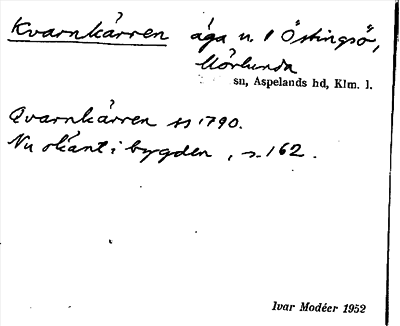 Kvarnkärren äga u. / Östingsö,
Mörlunda
sn, Aspelands hd, Klm. l.
Qvarnkärren ss 1790.
Nu okänt i bygden, s. 162.
Ivar Modéer 1952